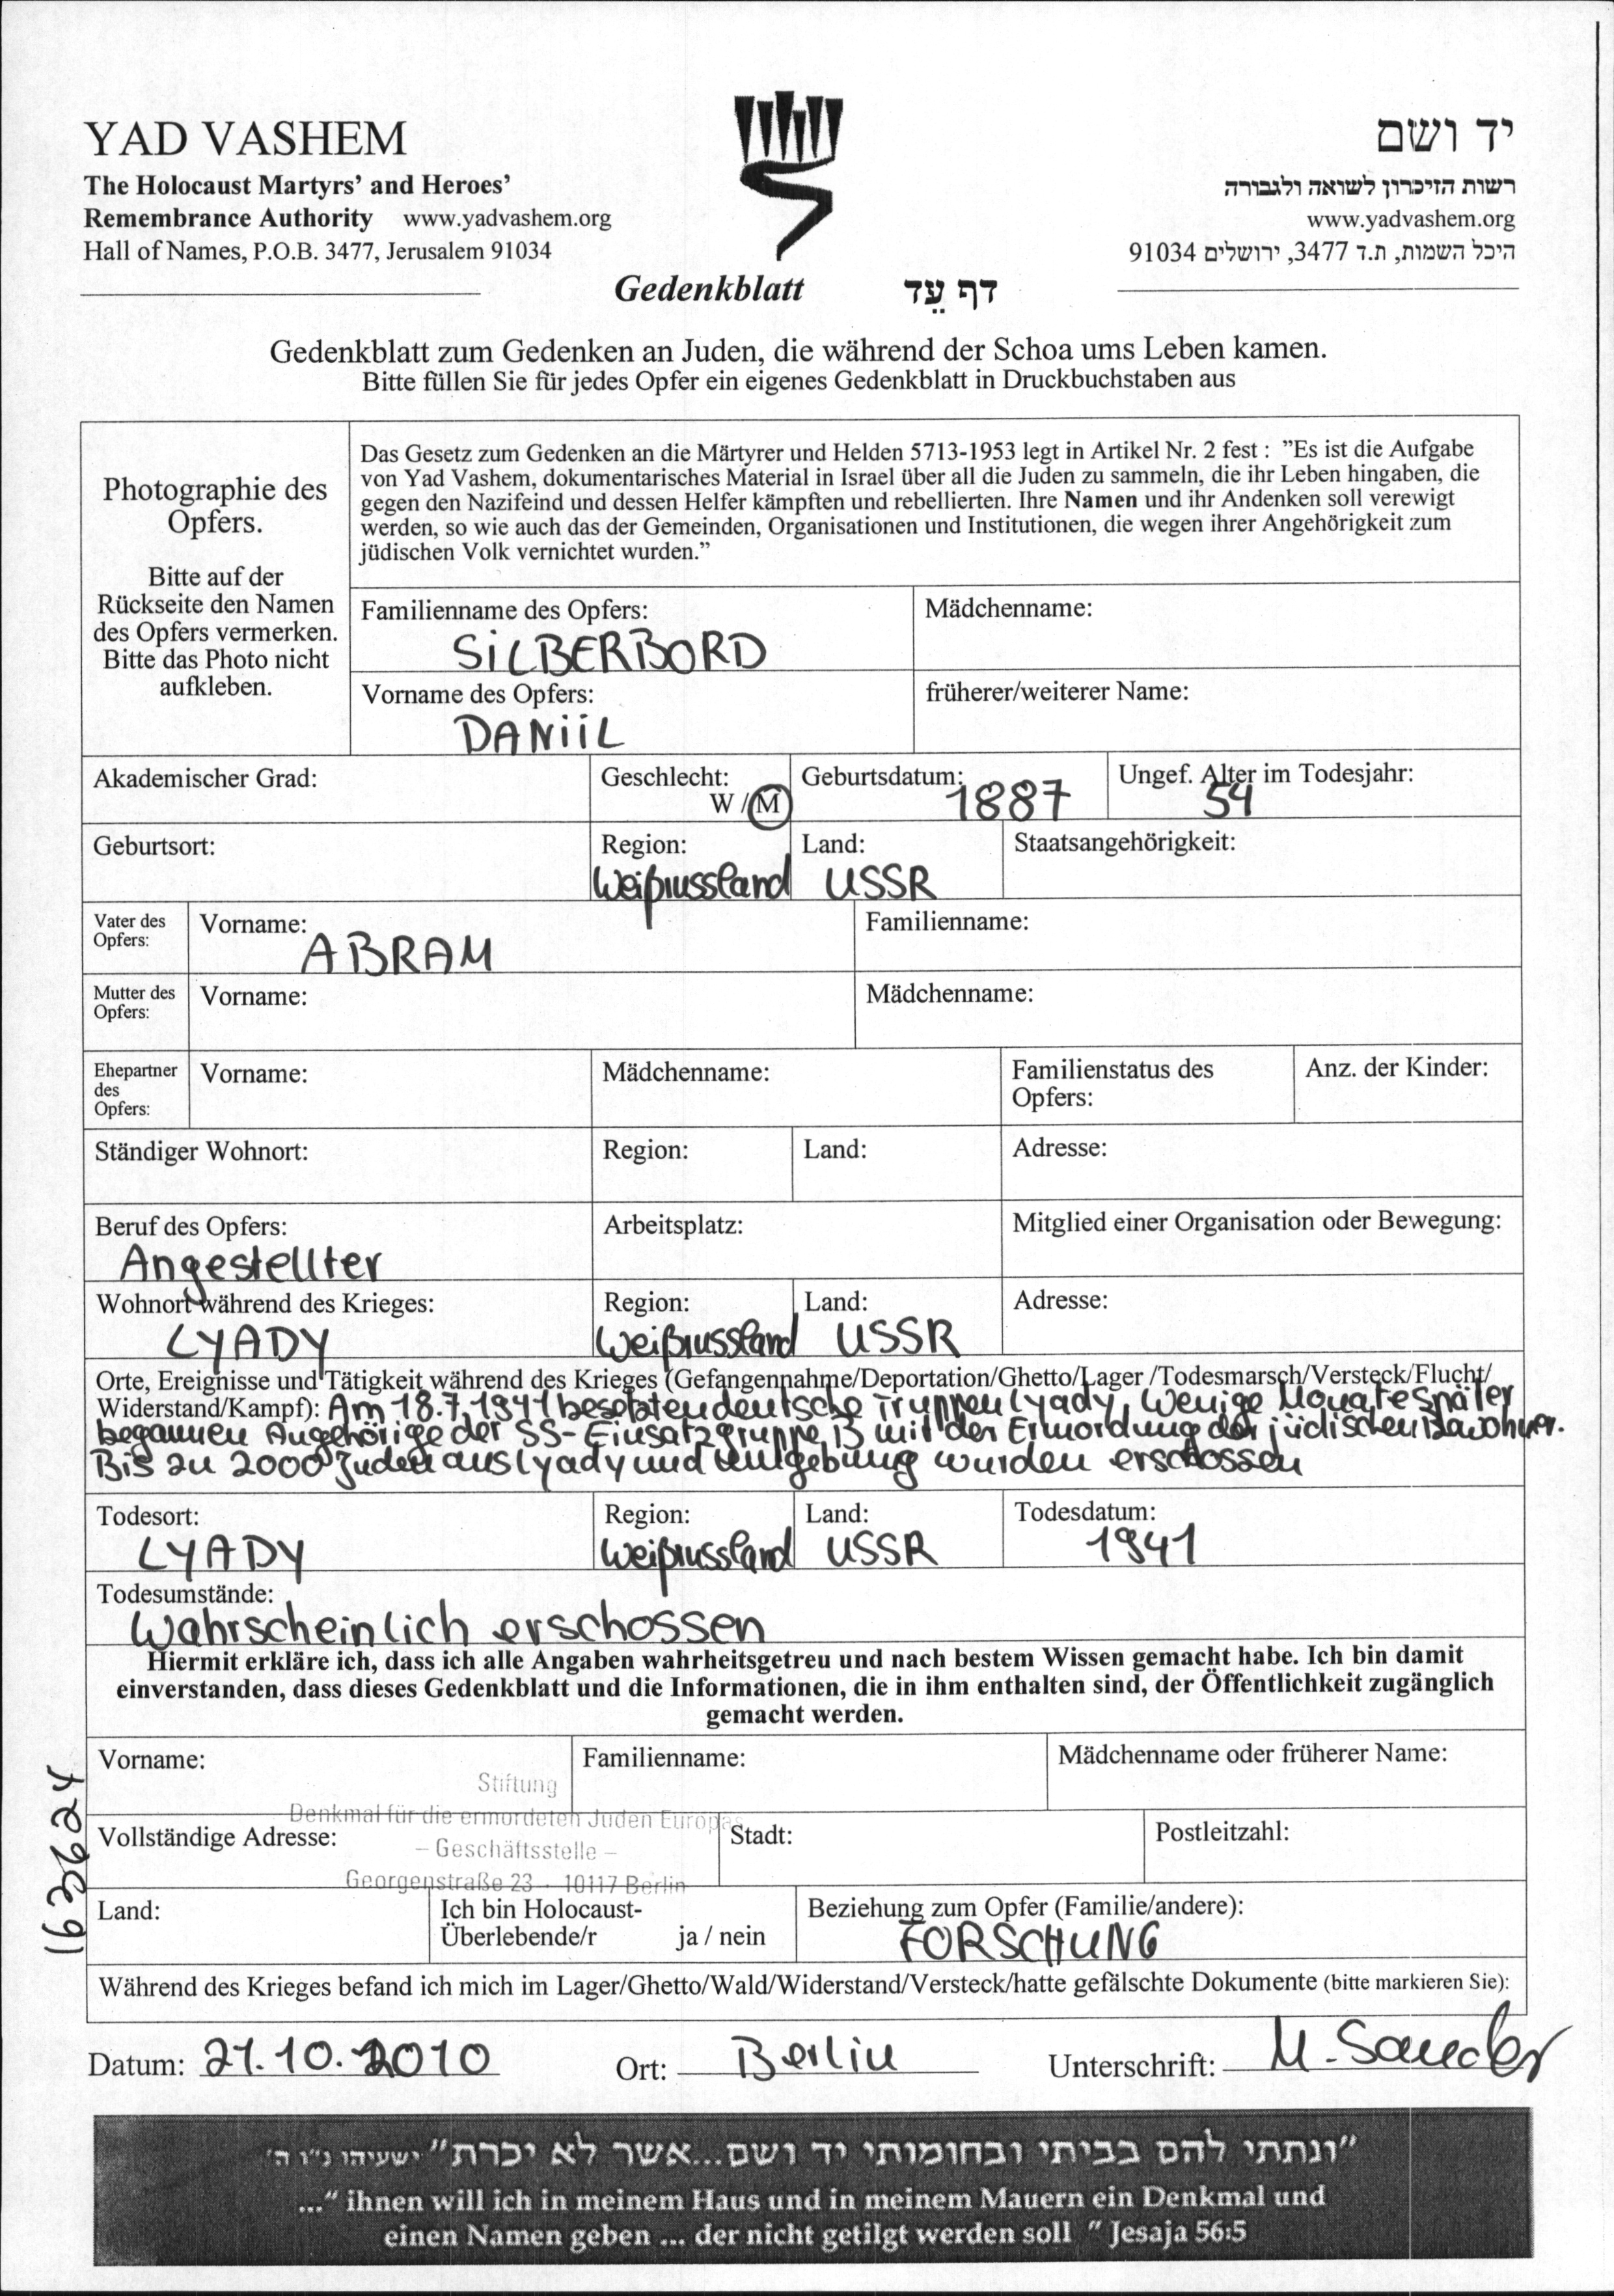 YAD VASHEM
The Holocaust Martyrs' and Heroes'
Remembrance Authority www.yadvashem.org
Hall of Names, P.O.B. 3477, Jerusalem 91034
יד ושם
רשות הזיכרון לשואה ולגבורה
www.yadvashem.org
היכל השמות, ת.ד 3477, ירושלים 91034
Gedenkblatt דף עֵד
Gedenkblatt zum Gedenken an Juden, die während der Schoa ums Leben kamen.
Bitte füllen Sie für jedes Opfer ein eigenes Gedenkblatt in Druckbuchstaben aus
Photographie des
Opfers.
Bitte auf der
Rückseite den Namen
des Opfers vermerken.
Bitte das Photo nicht
aufkleben.
Das Gesetz zum Gedenken an die Märtyrer und Helden 5713-1953 legt in Artikel Nr. 2 fest : "Es ist die Aufgabe
von Yad Vashem, dokumentarisches Material in Israel über all die Juden zu sammeln, die ihr Leben hingaben, die
gegen den Nazifeind und dessen Helfer kämpften und rebellierten. Ihre Namen und ihr Andenken soll verewigt
werden, so wie auch das der Gemeinden, Organisationen und Institutionen, die wegen ihrer Angehörigkeit zum
jüdischen Volk vernichtet wurden."
Familienname des Opfers: Mädchenname:
SILBERBORD
Vorname des Opfers: früherer/weiterer Name:
DANIIL
Akademischer Grad: Geschlecht: Geburtsdatum: Ungef. Alter im Todesjahr:
W / M 1887 54
Geburtsort: Region: Land: Staatsangehörigkeit:
Weißrussland USSR
Vater des Opfers: Vorname: Familienname:
ABRAM
Mutter des Opfers: Vorname: Mädchenname:
Ehepartner des Opfers: Vorname: Mädchenname: Familienstatus des Opfers: Anz. der Kinder:
Ständiger Wohnort: Region: Land: Adresse:
Beruf des Opfers: Arbeitsplatz: Mitglied einer Organisation oder Bewegung:
Angestellter
Wohnort während des Krieges: Region: Land: Adresse:
LYADY Weißrussland USSR
Orte, Ereignisse und Tätigkeit während des Krieges (Gefangennahme/Deportation/Ghetto/Lager /Todesmarsch/Versteck/Flucht/
Widerstand/Kampf): Am 18.7.1941 besetzten deutsche Truppen Lyady. Wenige Monate später
begannen Angehörige der SS-Einsatzgruppe B mit der Ermordung der jüdischen Bewohner.
Bis zu 2000 Juden aus Lyady und Umgebung wurden erschossen
Todesort: Region: Land: Todesdatum:
LYADY Weißrussland USSR 1941
Todesumstände:
Wahrscheinlich erschossen
Hiermit erkläre ich, dass ich alle Angaben wahrheitsgetreu und nach bestem Wissen gemacht habe. Ich bin damit
einverstanden, dass dieses Gedenkblatt und die Informationen, die in ihm enthalten sind, der Öffentlichkeit zugänglich
gemacht werden.
Vorname: Familienname: Mädchenname oder früherer Name:
Stiftung
Denkmal für die ermordeten Juden Europas
Vollständige Adresse: Stadt: Postleitzahl:
– Geschäftsstelle –
Georgenstraße 23 · 10117 Berlin
Land: Ich bin Holocaust-Überlebende/r ja / nein Beziehung zum Opfer (Familie/andere):
FORSCHUNG
Während des Krieges befand ich mich im Lager/Ghetto/Wald/Widerstand/Versteck/hatte gefälschte Dokumente (bitte markieren Sie):
Datum: 21.10.2010 Ort: Berlin Unterschrift:
"ונתתי להם בביתי ובחומותי יד ושם...אשר לא יכרת" ישעיהו נ"ו ה'
..." ihnen will ich in meinem Haus und in meinem Mauern ein Denkmal und
einen Namen geben ... der nicht getilgt werden soll " Jesaja 56:5